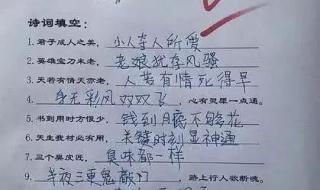 诗词填空：
1. 君子成人之美，小人夺人所爱
2. 英雄宝刀未老，老娘犹存风骚
3. 天若有情天亦老，人若有情死得早
4. 身无彩凤双双飞，心有灵犀一点通。
5. 书到用时方恨少，钱到月底不够花
6. 天生我材必有用，关键时刻显神通
7. 三个臭皮匠，臭味都一样
9. 半夜三更鬼敲门，路上行人欲断魂。